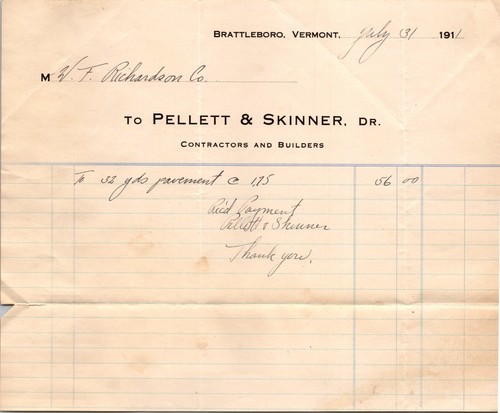 BRATTLEBORO, VERMONT, July 31 1911
M W. F. Richardson Co.
TO PELLETT & SKINNER, DR.
CONTRACTORS AND BUILDERS
To 32 yds pavement @ 1.75 56 00
Rec'd Payment
Pellett & Skinner
Thank you.